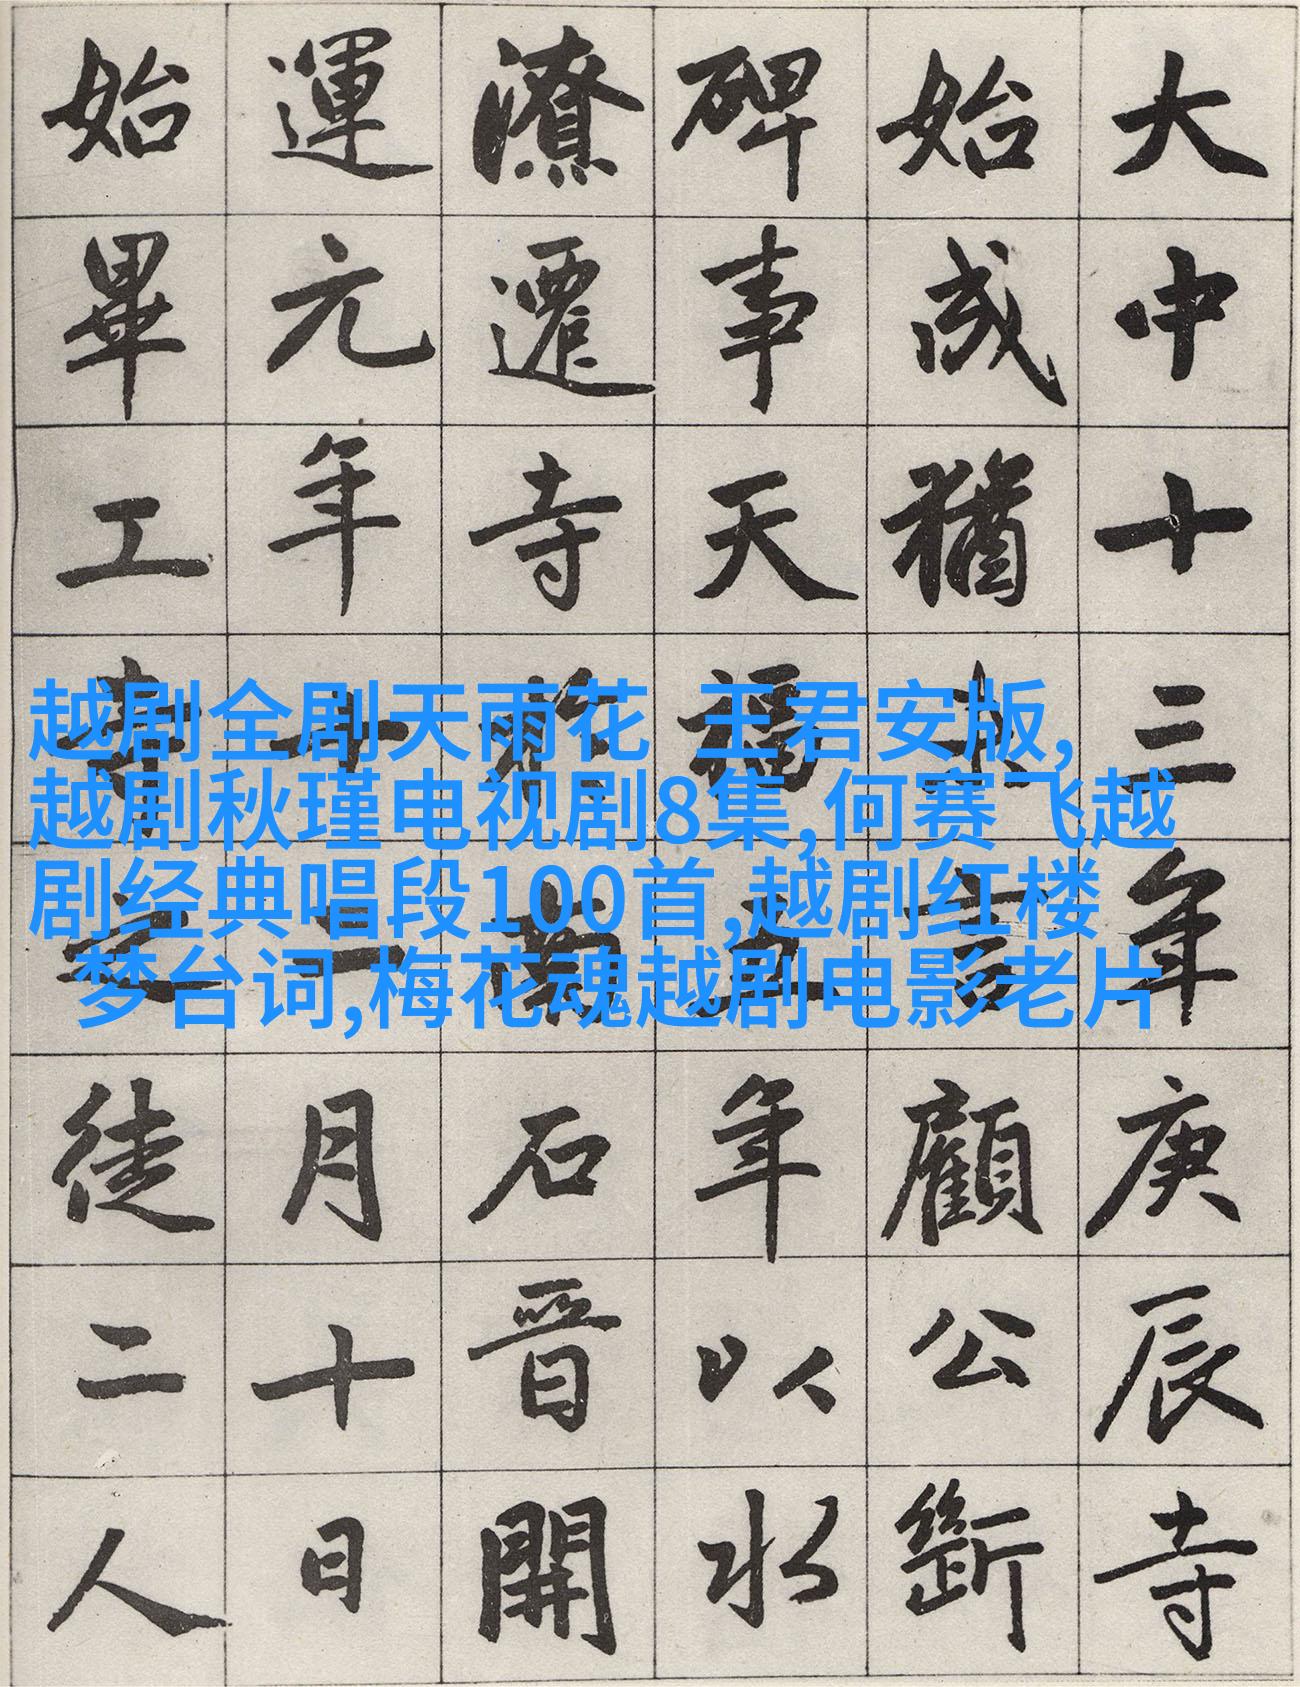 大中十三年庚辰寺
始成猶言顧公斲
碑事天福五年以水
潦遷寺石晉開
運元年十二月十日
始畢工徒二人
越剧全剧天雨花 王君安版,
越剧秋瑾电视剧8集,何赛飞越
剧经典唱段100首,越剧红楼
梦台词,梅花魂越剧电影老片